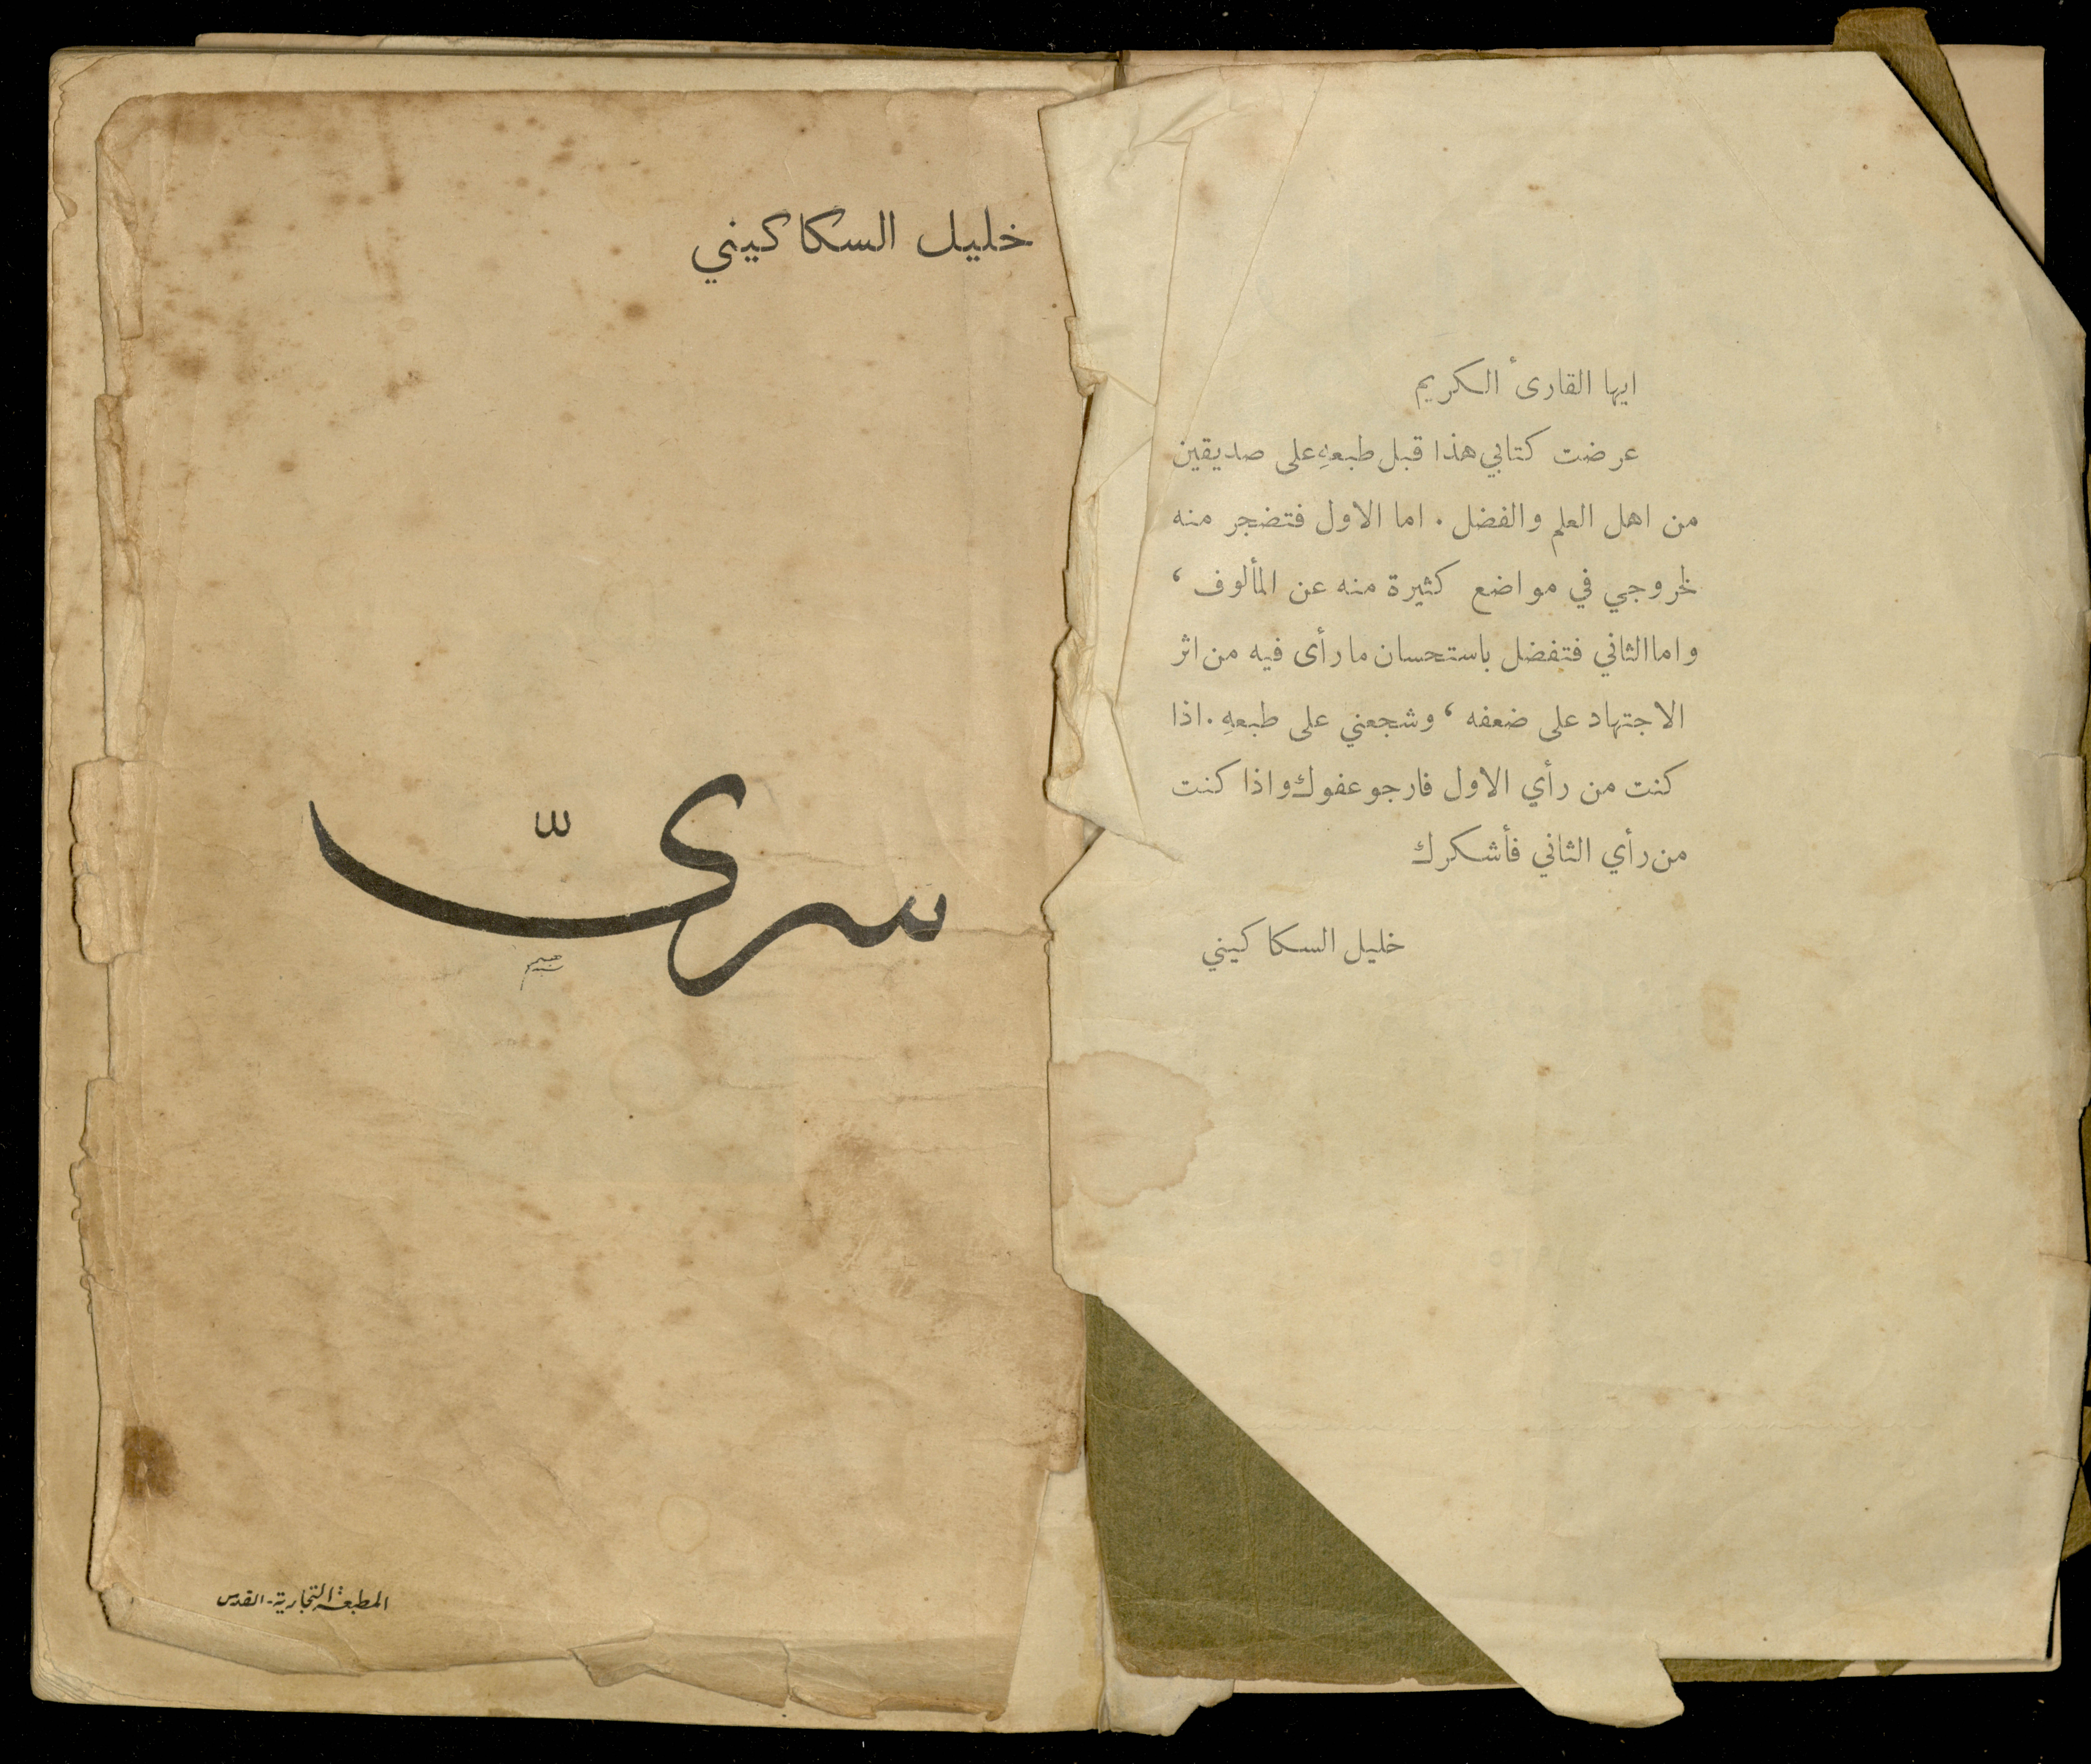 ايها القارئ الكريم
عرضت كتابي هذا قبل طبعهِ على صديقين
من اهل العلم والفضل . اما الاول فتضجر منه
لخروجي في مواضع كثيرة منه عن المألوف ،
واما الثاني فتفضل باستحسان ما رأى فيه من اثر
الاجتهاد على ضعفه ، وشجعني على طبعهِ . اذا
كنت من رأي الاول فارجو عفوك واذا كنت
من رأي الثاني فأشكرك
خليل السكاكيني
خليل السكاكيني
سريّ
المطبعة التجارية - القدس